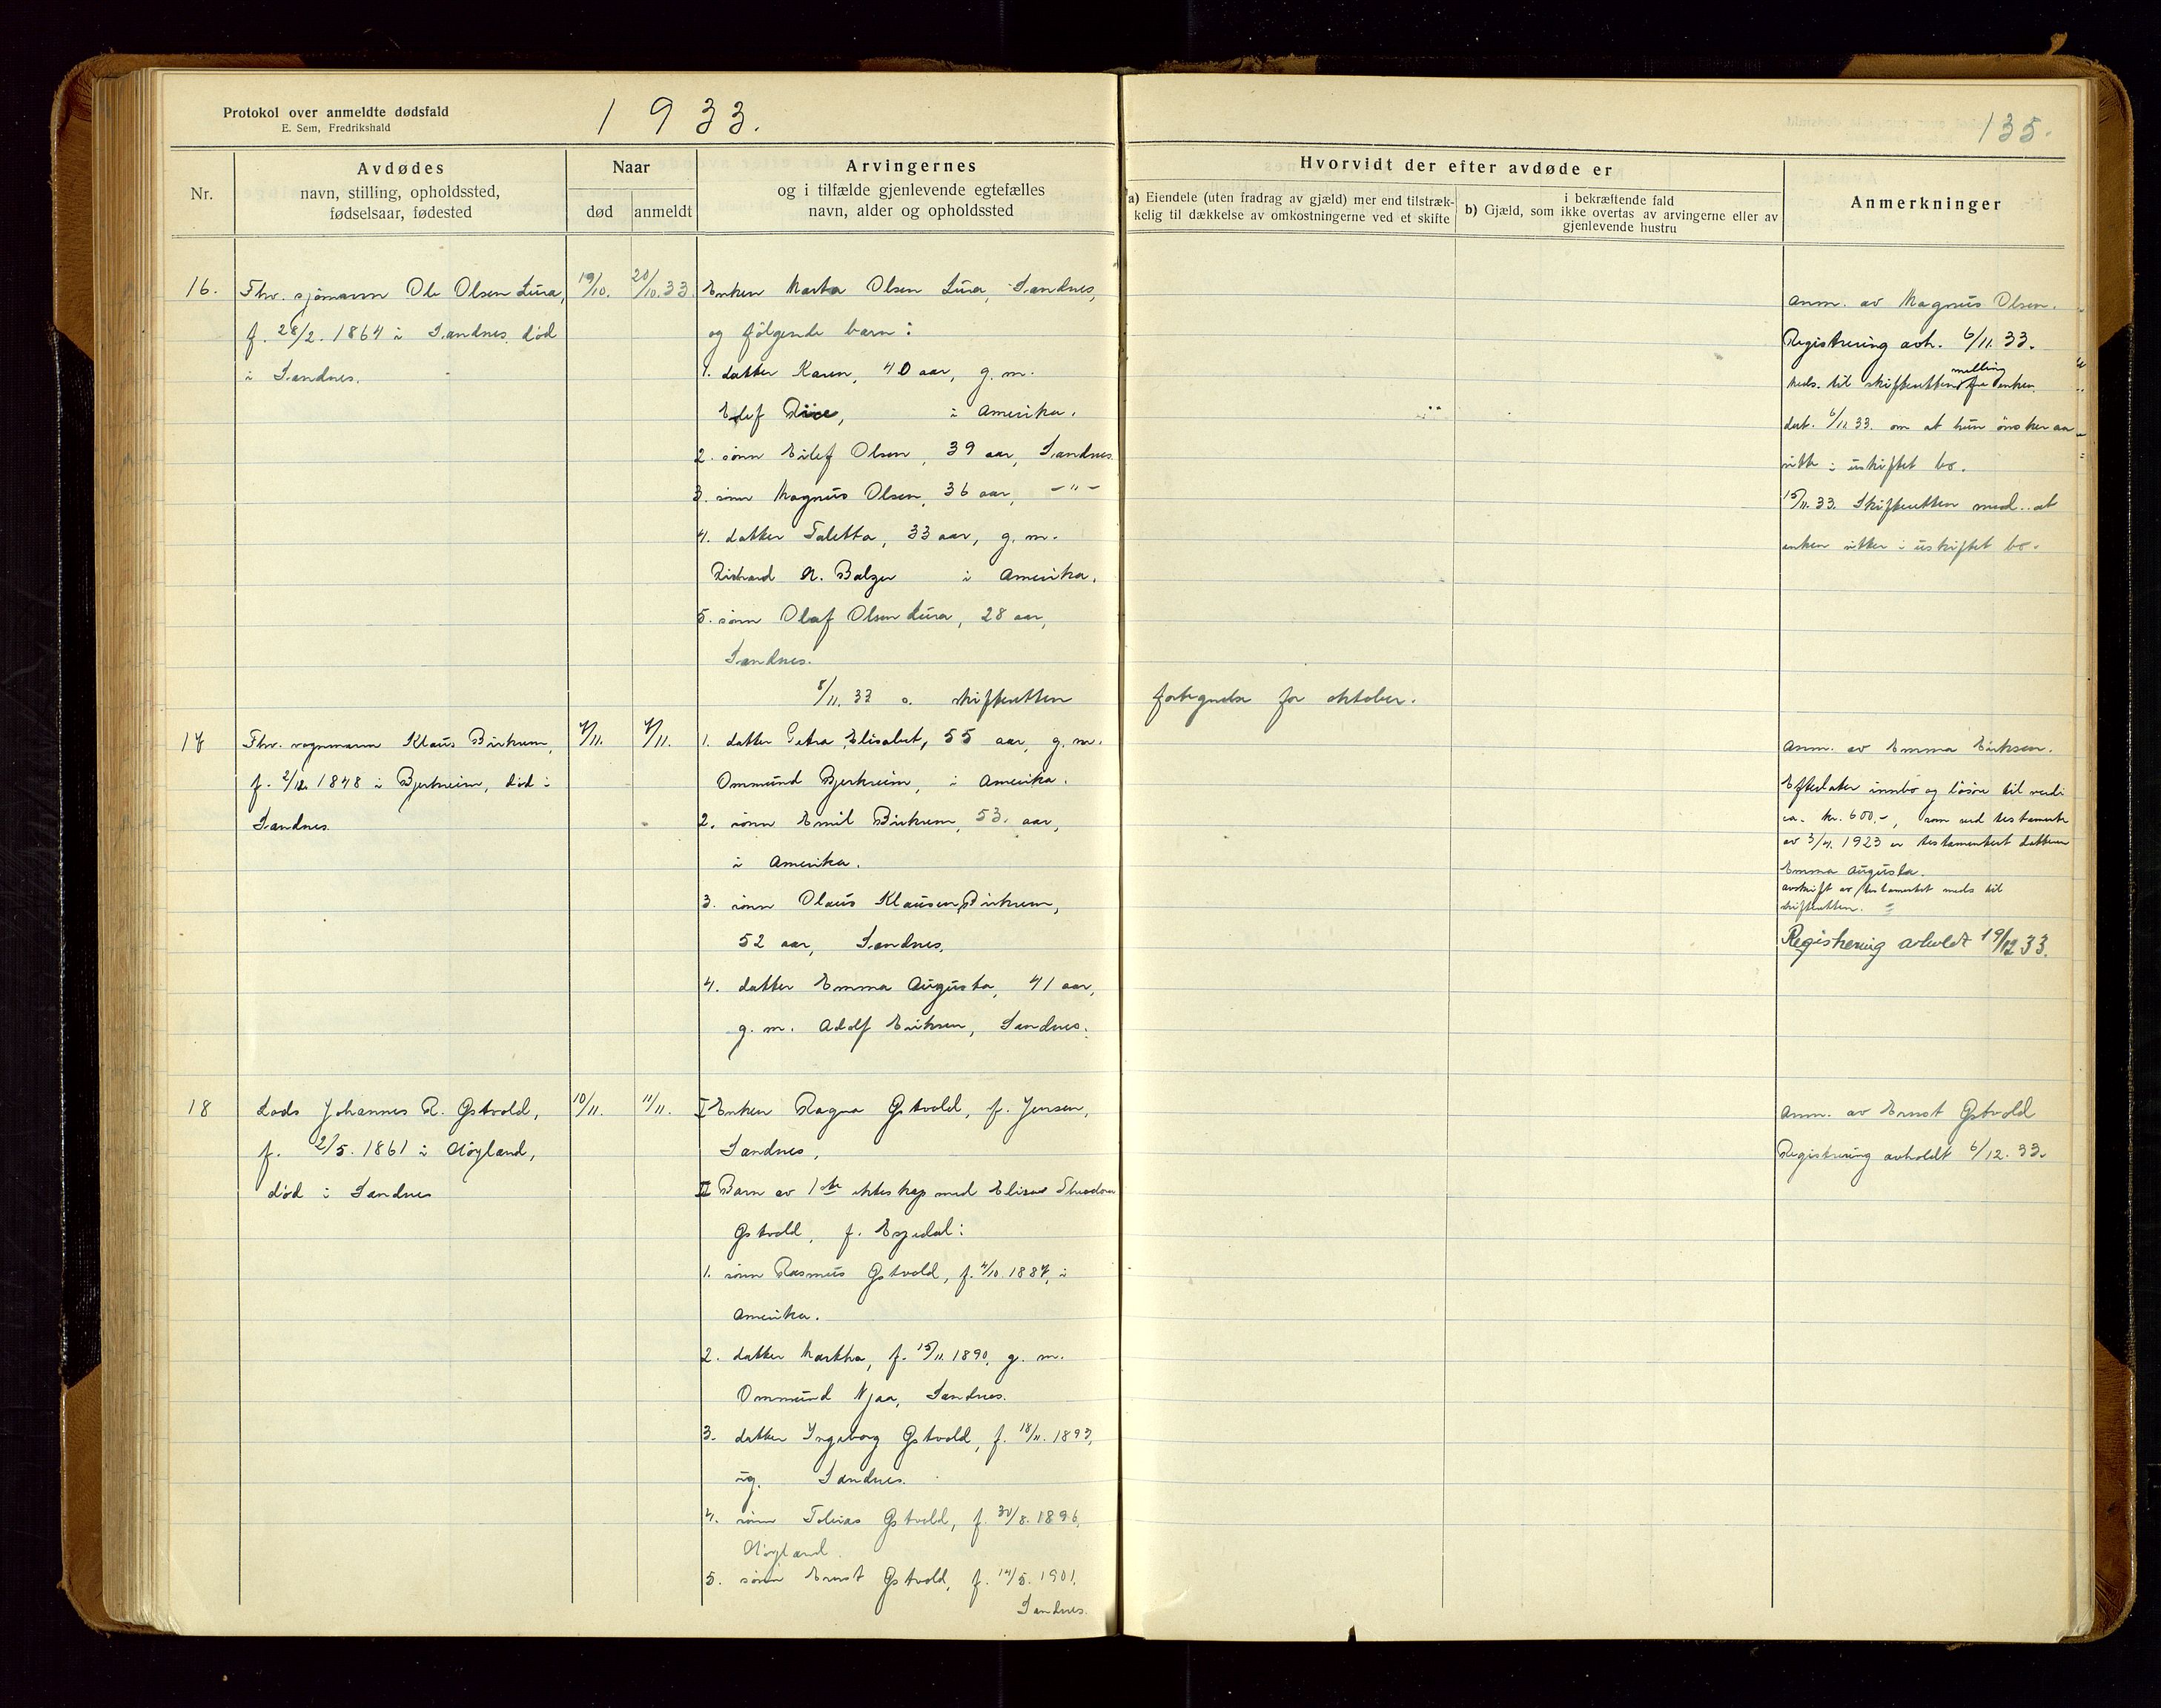 Protokol over anmeldte dødsfald
E. Sem, Fredrikshald
1933.
135.
Nr.
Avdødes
navn, stilling, opholdssted,
fødselsaar, fødested
Naar
død
anmeldt
Arvingernes
og i tilfælde gjenlevende egtefælles
navn, alder og opholdssted
Hvorvidt der efter avdøde er
a) Eiendele (uten fradrag av gjæld) mer end tilstræk-
kelig til dækkelse av omkostningerne ved et skifte
b) Gjæld, som
i bekræftende fald
ikke overtas av arvingerne eller av
gjenlevende hustru
Anmerkninger
16.
Fhv. sjömann Ole Olsen Lura,
f. 28/2. 1864 i Sandnes, död
i Sandnes.
19/10.
20/10.33
Enken Marta Olsen Lura, Sandnes,
og fölgende barn:
1. datter Karen, 40 aar, g. m.
Elef Rice, i Amerika.
2. sönn Eilef Olsen, 39 aar, Sandnes
3. sönn Magnus Olsen, 36 aar, -"-
4. datter Taletta, 33 aar, g. m.
Richard A. Balzer i Amerika.
5. sönn Olaf Olsen Lura, 28 aar,
Sandnes.
8/11. 33 s. skifteretten fortegnelse for oktober.
Anm. av Magnus Olsen.
Registrering avh. 6/11. 33.
Meds. til skifteretten melling fra enken
dat. 6/11 33. om at hun önsker aa
sitte i uskiftet bo.
15/11. 33. Skifteretten med. at
enken sitter i uskiftet bo.
17
Fhv. vognmann Klaus Birkrem,
f. 2/12. 1848 i Bjerkreim, död i
Sandnes.
7/11.
7/11.
1. datter Petra Elisabet, 55 aar, g. m.
Ommund Bjerkreim, i Amerika.
2. sönn Emil Birkrem, 53. aar,
i Amerika.
3. sönn Olaus Klausen Birkrem,
52 aar, Sandnes.
4. datter Emma Augusta, 41 aar,
g. m. Adolf Eriksen, Sandnes.
Anm. av Emma Eriksen.
Efterlater innbo og lösöre til verdi
ca. kr. 600.-, som ved testamente
av 3/4. 1923 er testamentert datteren
Emma Augusta.
avskrift av testamentet meds til
skifteretten.
Registrering avholdt 19/12 33.
18
Lods Johannes R. Gstvold,
f. 2/5. 1861 i Höyland,
död i Sandnes
10/11.
11/11.
I Enken Ragna Gstvold, f. Jensen,
Sandnes,
II Barn av 1ste ekteskap med Elise Theodora
Gstvold, f. Espedal:
1. sönn Rasmus Gstvold, f. 4/10. 1887, i
Amerika.
2. datter Martha, f. 15/11. 1890, g. m.
Ommund Njaa, Sandnes.
3. datter Ingeborg Gstvold, f. 18/11. 1893,
ug. Sandnes.
4. sönn Tobias Gstvold, f. 30/8. 1896,
Höyland.
5. sönn Ernst Gstvold, f. 14/5. 1901,
Sandnes.
Anm. av Ernst Gstvold
Registrering avholdt 6/12. 33.